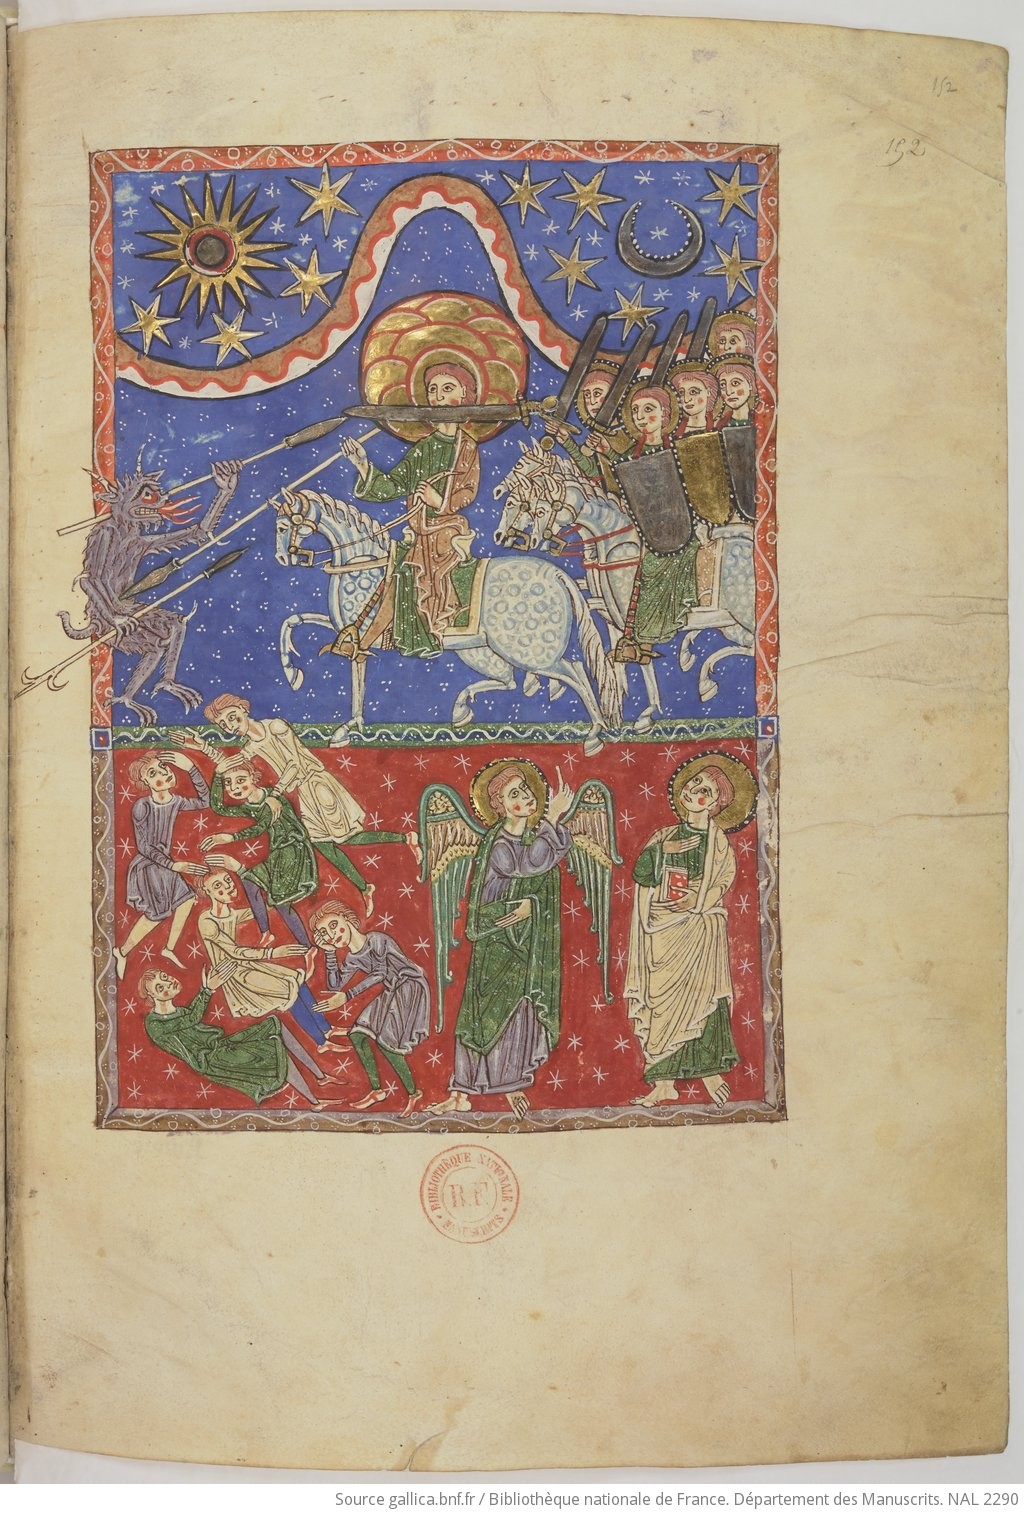 152
152
BIBLIOTHÈQUE NATIONALE
R.F.
MANUSCRITS
Source gallica.bnf.fr / Bibliothèque nationale de France. Département des Manuscrits. NAL 2290